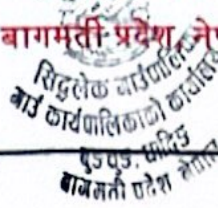 बागमती प्रदेश, ने
सिद्धलेक गाउँपालिका
गाउँ कार्यपालिकाको कार्यालय
धादिङ
बागमती प्रदेश नेपाल